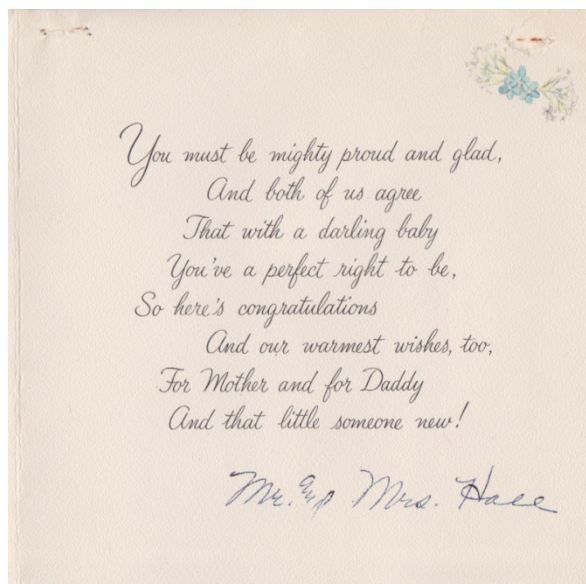 You must be mighty proud and glad,
And both of us agree
That with a darling baby
You've a perfect right to be,
So here's congratulations
And our warmest wishes, too,
For Mother and for Daddy
And that little someone new!
Mr. & Mrs. Hall